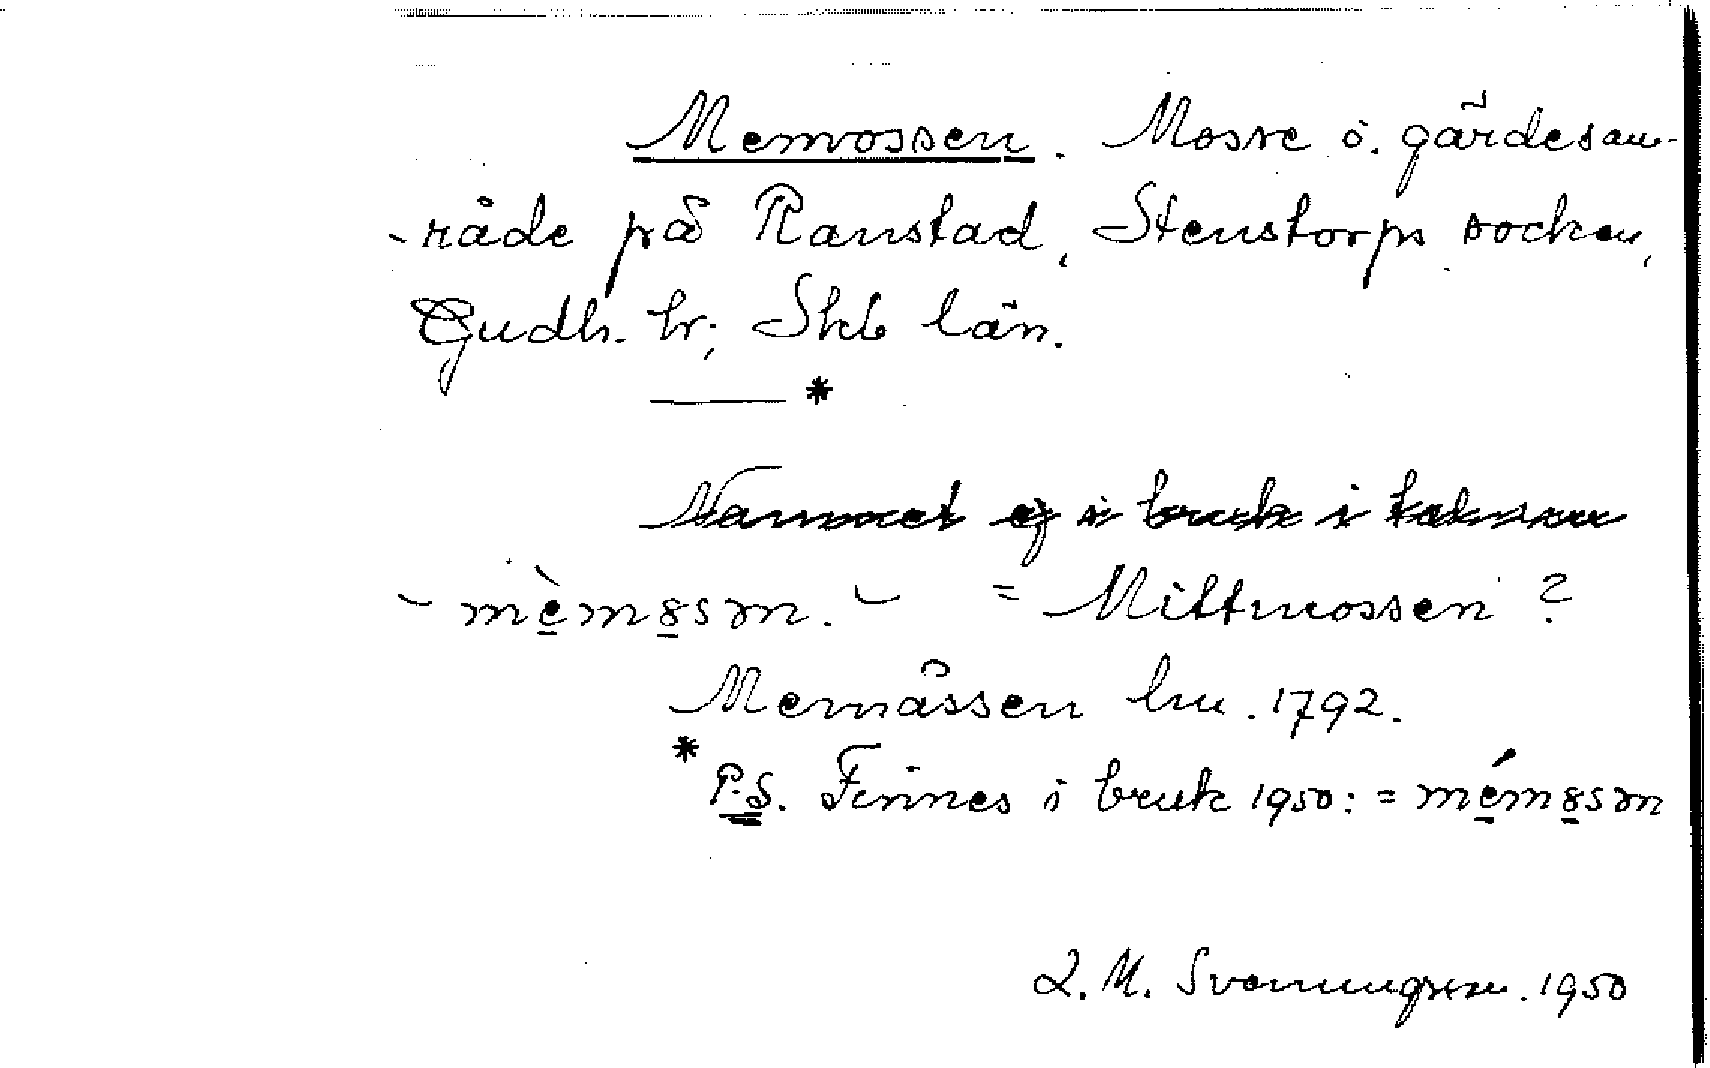 Memossen. Mosse ö. gärdesom-
-råde på Ranstad, Stenstorps socken,
Gudh. hr; Skb län.
*
Namnet ej i bruk i trakten
- mèmȣsən. - = Mittmossen ?
Memåssen hm. 1792.
* P.S. Finnes i bruk 1950: = mémȣsən
L. M. Svenungsson. 1950